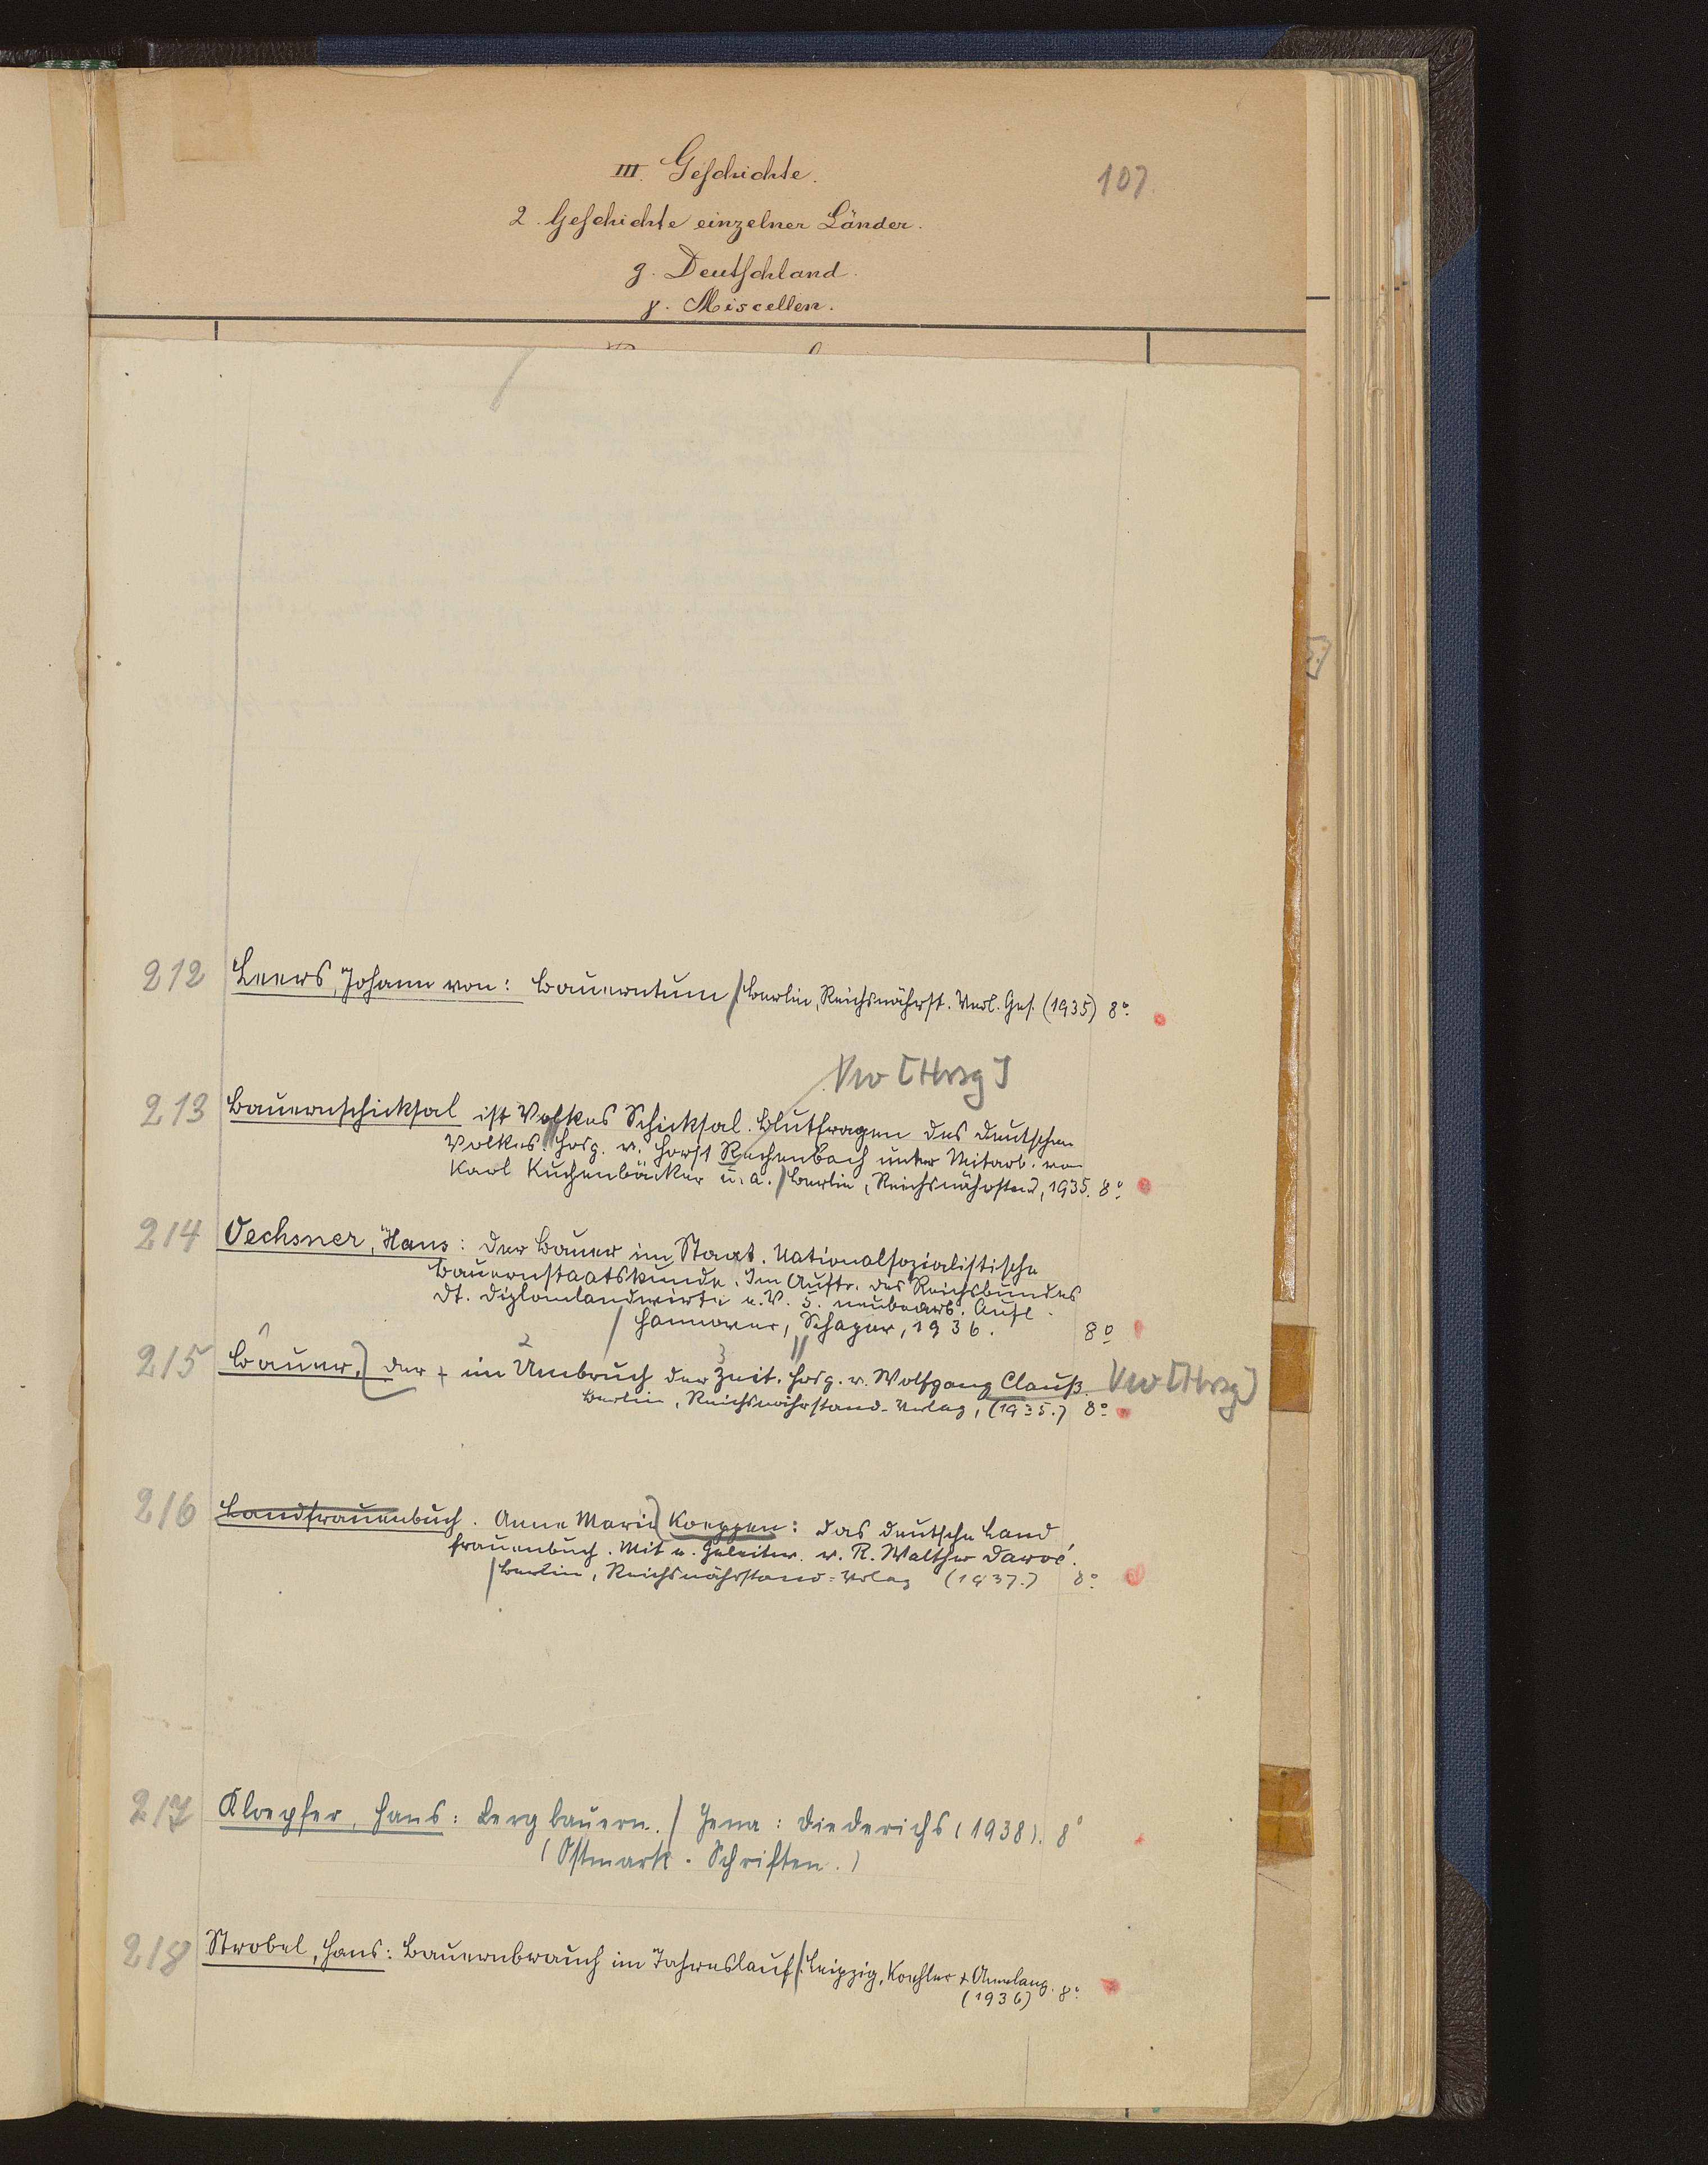 III. Geschichte.
107.
2. Geschichte einzelner Länder.
g. Deutschland.
γ. Miscellen.
212 Leers, Johann von: Bauerntum / Berlin, Reichsnährst. Verl. Ges. (1935) 8°.
Vw [Hrsg]
213 Bauernschicksal ist Volkes Schicksal. Blutfragen des deutschen
Volkes. Hrsg. v. Horst Rechenbach unter Mitarb. von
Karl Kuchenbäcker u. a. / Berlin, Reichsnährstand, 1935. 8°.
214 Oechsner, Hans: Der Bauer im Staat. Nationalsozialistische
Bauernstaatskunde. Im Auftr. des Reichsbundes
Dt. Diplomlandwirte e. V. 5. neubearb. Aufl.
/ Hannover, Schaper, 1936. 8°
215 Bauer, der + im Umbruch der Zeit. Hrsg. v. Wolfgang Clauß. Vw [Hrsg]
Berlin, Reichsnährstand-Verlag, (1935.) 8°.
216 Landfrauenbuch. Anne Marie Koeppen: Das deutsche Land
frauenbuch. Mit e. Geleitw. v. R. Walther Darré.
/ Berlin, Reichsnährstand-Verlag (1937.) 8°.
217 Kloepfer, Hans: Bergbauern. / Jena: Diederichs (1938). 8°
(Ostmark-Schriften.)
218 Strobel, Hans: Bauernbrauch im Jahreslauf / Leipzig, Koehler + Amelang. 8°.
(1936)